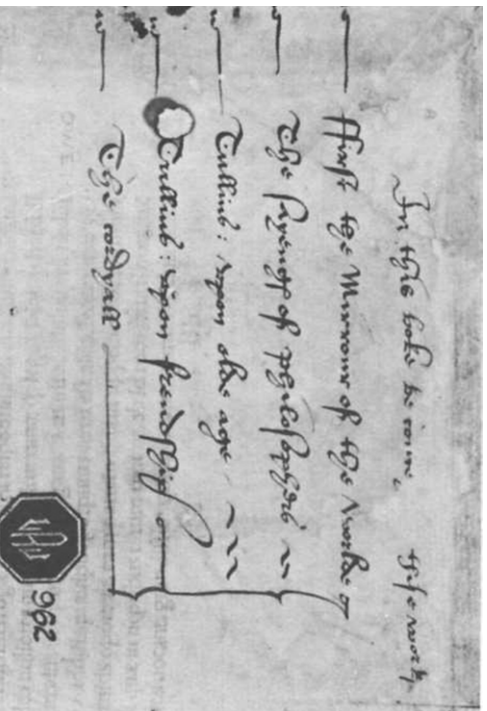 In this boke be these
ffirst the Mirrour of the Worlde
The sayengs of philosophers
Tullius: vpon olde age
Tullius: vpon frendship
The cordyall
962